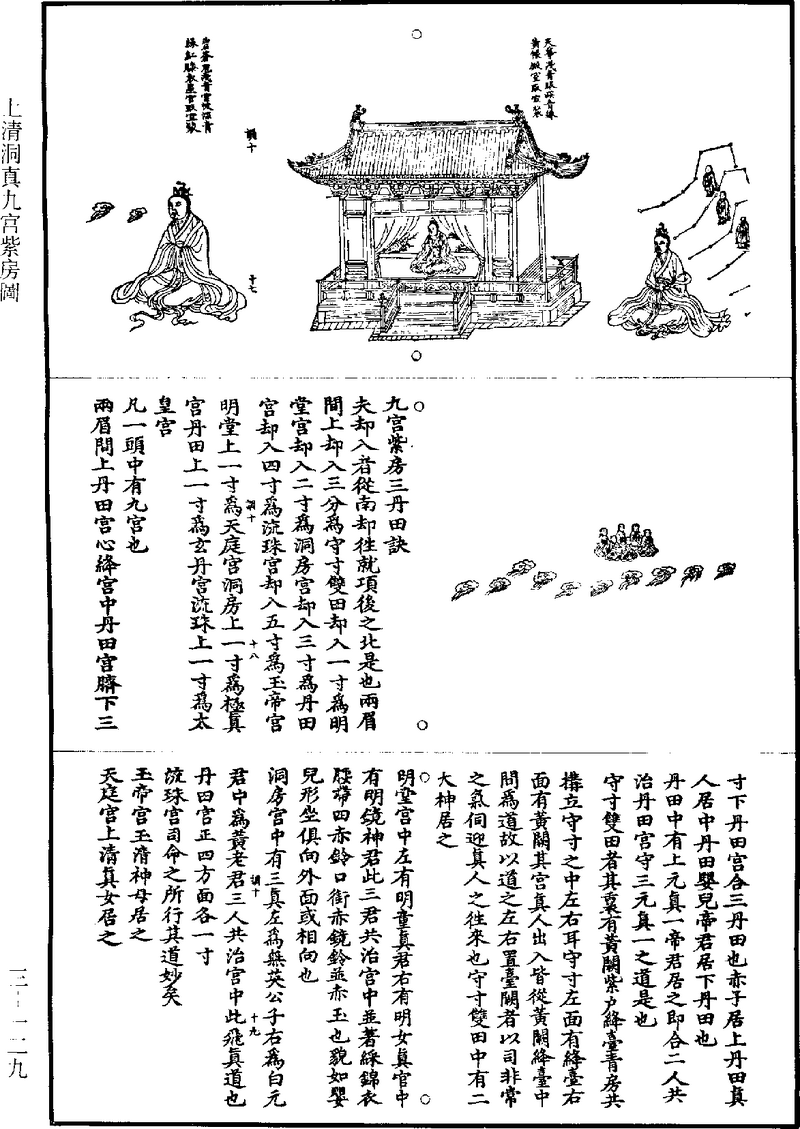 上清洞真九宮紫房圖
調十
十七
九宮紫房三丹田訣
夫却入者從南却往就項後之北是也兩眉
間上却入三分爲守寸雙田却入一寸爲明
堂宮却入二寸爲洞房宮却入三寸爲丹田
宮却入四寸爲流珠宮却入五寸爲玉帝宮
明堂上一寸爲天庭宮洞房上一寸爲極真
調十
十八
宮丹田上一寸爲玄丹宮流珠上一寸爲太
皇宮
凡一頭中有九宮也
兩眉間上丹田宮心絳宮中丹田宮臍下三
寸下丹田宮合三丹田也赤子居上丹田真
人居中丹田嬰兒帝君居下丹田也
丹田中有上元真一帝君居之即合二人共
治丹田宮守三元真一之道是也
守寸雙田者其裏有黃闕紫户絳臺青房共
構立守寸之中左右耳守寸左面有絳臺右
面有黃闕其宮真人出入皆從黃闕絳臺中
間爲道故以道之左右置臺闕者以司非常
之氣伺迎真人之往來也守寸雙田中有二
大神居之
明堂宮中左有明童真君右有明女真官中
有明鏡神君此三君共治宮中並著綵錦衣
腰帶四赤鈴口銜赤鏡鈴並赤玉也貌如嬰
兒形坐俱向外面或相向也
洞房宮中有三真左爲無英公子右爲白元
君中爲黃老君三人共治宮中此飛真道也
調十
十九
丹田宮正四方面各一寸
流珠宮司命之所行其道妙矣
玉帝宮玉清神母居之
天庭宮上清真女居之
三—一二九